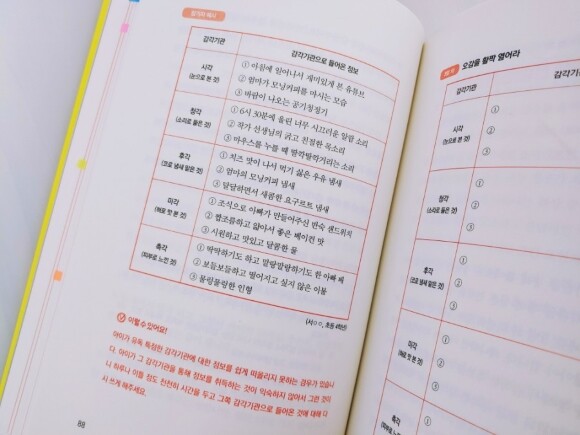 참가자 예시
감각기관
감각기관으로 들어온 정보
시각
(눈으로 본 것)
① 아침에 일어나서 재미있게 본 유튜브
② 엄마가 모닝커피를 마시는 모습
③ 바람이 나오는 공기청정기
청각
(소리로 들은 것)
① 6시 30분에 울린 너무 시끄러운 알람 소리
② 작가 선생님의 굵고 친절한 목소리
③ 마우스를 누를 때 딸깍딸깍거리는 소리
후각
(코로 냄새 맡은 것)
① 치즈 맛이 나서 먹기 싫은 우유 냄새
② 엄마의 모닝커피 냄새
③ 달달하면서 새콤한 요구르트 냄새
미각
(혀로 맛 본 것)
① 조식으로 아빠가 만들어주신 반숙 샌드위치
② 짭조름하고 얇아서 좋은 베이컨 맛
③ 시원하고 맛있고 달콤한 물
촉각
(피부로 느낀 것)
① 딱딱하기도 하고 말랑말랑하기도 한 아빠 배
② 보들보들하고 떨어지고 싶지 않은 이불
③ 물렁물렁한 인형
(서○○, 초등 4학년)
이럴 수 있어요!
아이가 유독 특정한 감각기관에 대한 정보를 쉽게 떠올리지 못하는 경우가 있습니
다. 아이가 그 감각기관을 통해 정보를 취득하는 것이 익숙하지 않아서 그런 것이
니 하루나 이틀 정도 천천히 시간을 두고 그쪽 감각기관으로 들어온 것에 대해 다
시 쓰게 해주세요.
88
오감을 활짝 열어라
감각기관
감각기
시각
(눈으로 본 것)
①
②
③
청각
(소리로 들은 것)
①
②
③
후각
(코로 냄새 맡은 것)
①
②
③
미각
(혀로 맛 본 것)
①
②
③
촉각
(피부로 느낀 것)
①
②